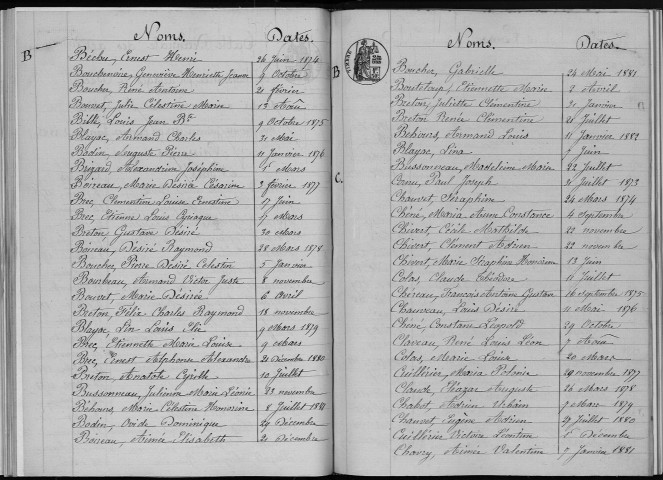 Noms. Dates.
B
Béchu, Ernest Henri 26 Juin 1874
Bouchenoire, Geneviève Henriette Jeanne 9 Octobre
Boucher, René Antoine 21 février
Bouvet, Julie Célestine Marie 13 Août
Bille, Louis Jean Bte 9 Octobre 1875
Blayac, Armand Charles 31 Mai
Bodin, Auguste Pierre 11 Janvier 1876
Brizard, Alexandrine Joséphine 1er Mars
Boireau, Marie Désirée Césarine 2 février 1877
Brec, Clémentine Louise Ernestine 17 Juin
Brec, Etienne Louis Cyriaque 17 Mars
Breton Gustave Désiré 30 Mars
Boireau, Désiré Raymond 28 Mars 1878
Boucher, Pierre Désiré Célestin 5 Janvier
Bourbeau, Armand Victor Juste 8 novembre
Bouvet, Marie Désirée 6 Avril
Breton, Félix Charles Raymond 18 novembre
Blayac, Léa Louis 9 Mars 1879
Brec, Etiennette Marie Louise 9 Mars
Brec, Ernest Alphonse Alexandre 21 Décembre 1880
Breton Anatole Cyrille 10 Juillet
Bussonneau, Julienne Marie Léonie 23 novembre
Béhours, Marie Célestine Honorine 8 Juillet 1881
Bodin, Ovide Dominique 29 Décembre
Boireau, Aimée Elisabeth 21 Décembre
Noms. Dates.
B
Boucher, Gabrielle 24 Mai 1881
Bouteloup, Etiennette Marie 2 Avril
Breton, Juliette Clémentine 21 Janvier
Breton Renée Clémentine 21 Juillet
Béhours, Armand Louis 11 Janvier 1882
Blayac, Lina 7 Juin
Bussonneau, Madeleine Marie 22 Juillet
C.
Cornu, Paul Joseph 31 Juillet 1873
Chauvet, Séraphine 24 Mars 1874
Chéné, Maria Anne Constance 4 septembre
Chivert, Cécile Mathilde 22 novembre
Chivert, Clément Adrien 22 novembre
Chivert, Marie Séraphine Honorine 13 Juin
Colas, Claude Théodore 11 Juillet
Chéreau, François Antoine Gustave 16 septembre 1875
Chauveau, Louis Désiré 11 Mai 1876
Chéné, Constant Léopold 29 Octobre
Claveau, René Louis Léon 7 Août
Colas, Marie Louise 20 Mars
Cuillérier, Maria Polonie 29 novembre 1877
Claude, Eléazar Auguste 26 Mars 1878
Chabot, Adrien Urbain 7 Mars 1879
Chauvet, Eugène Adrien 29 Juillet 1880
Cuillérier Victoire Léontine 5 Décembre
Chavry, Aimée Valentine 7 Janvier 1881